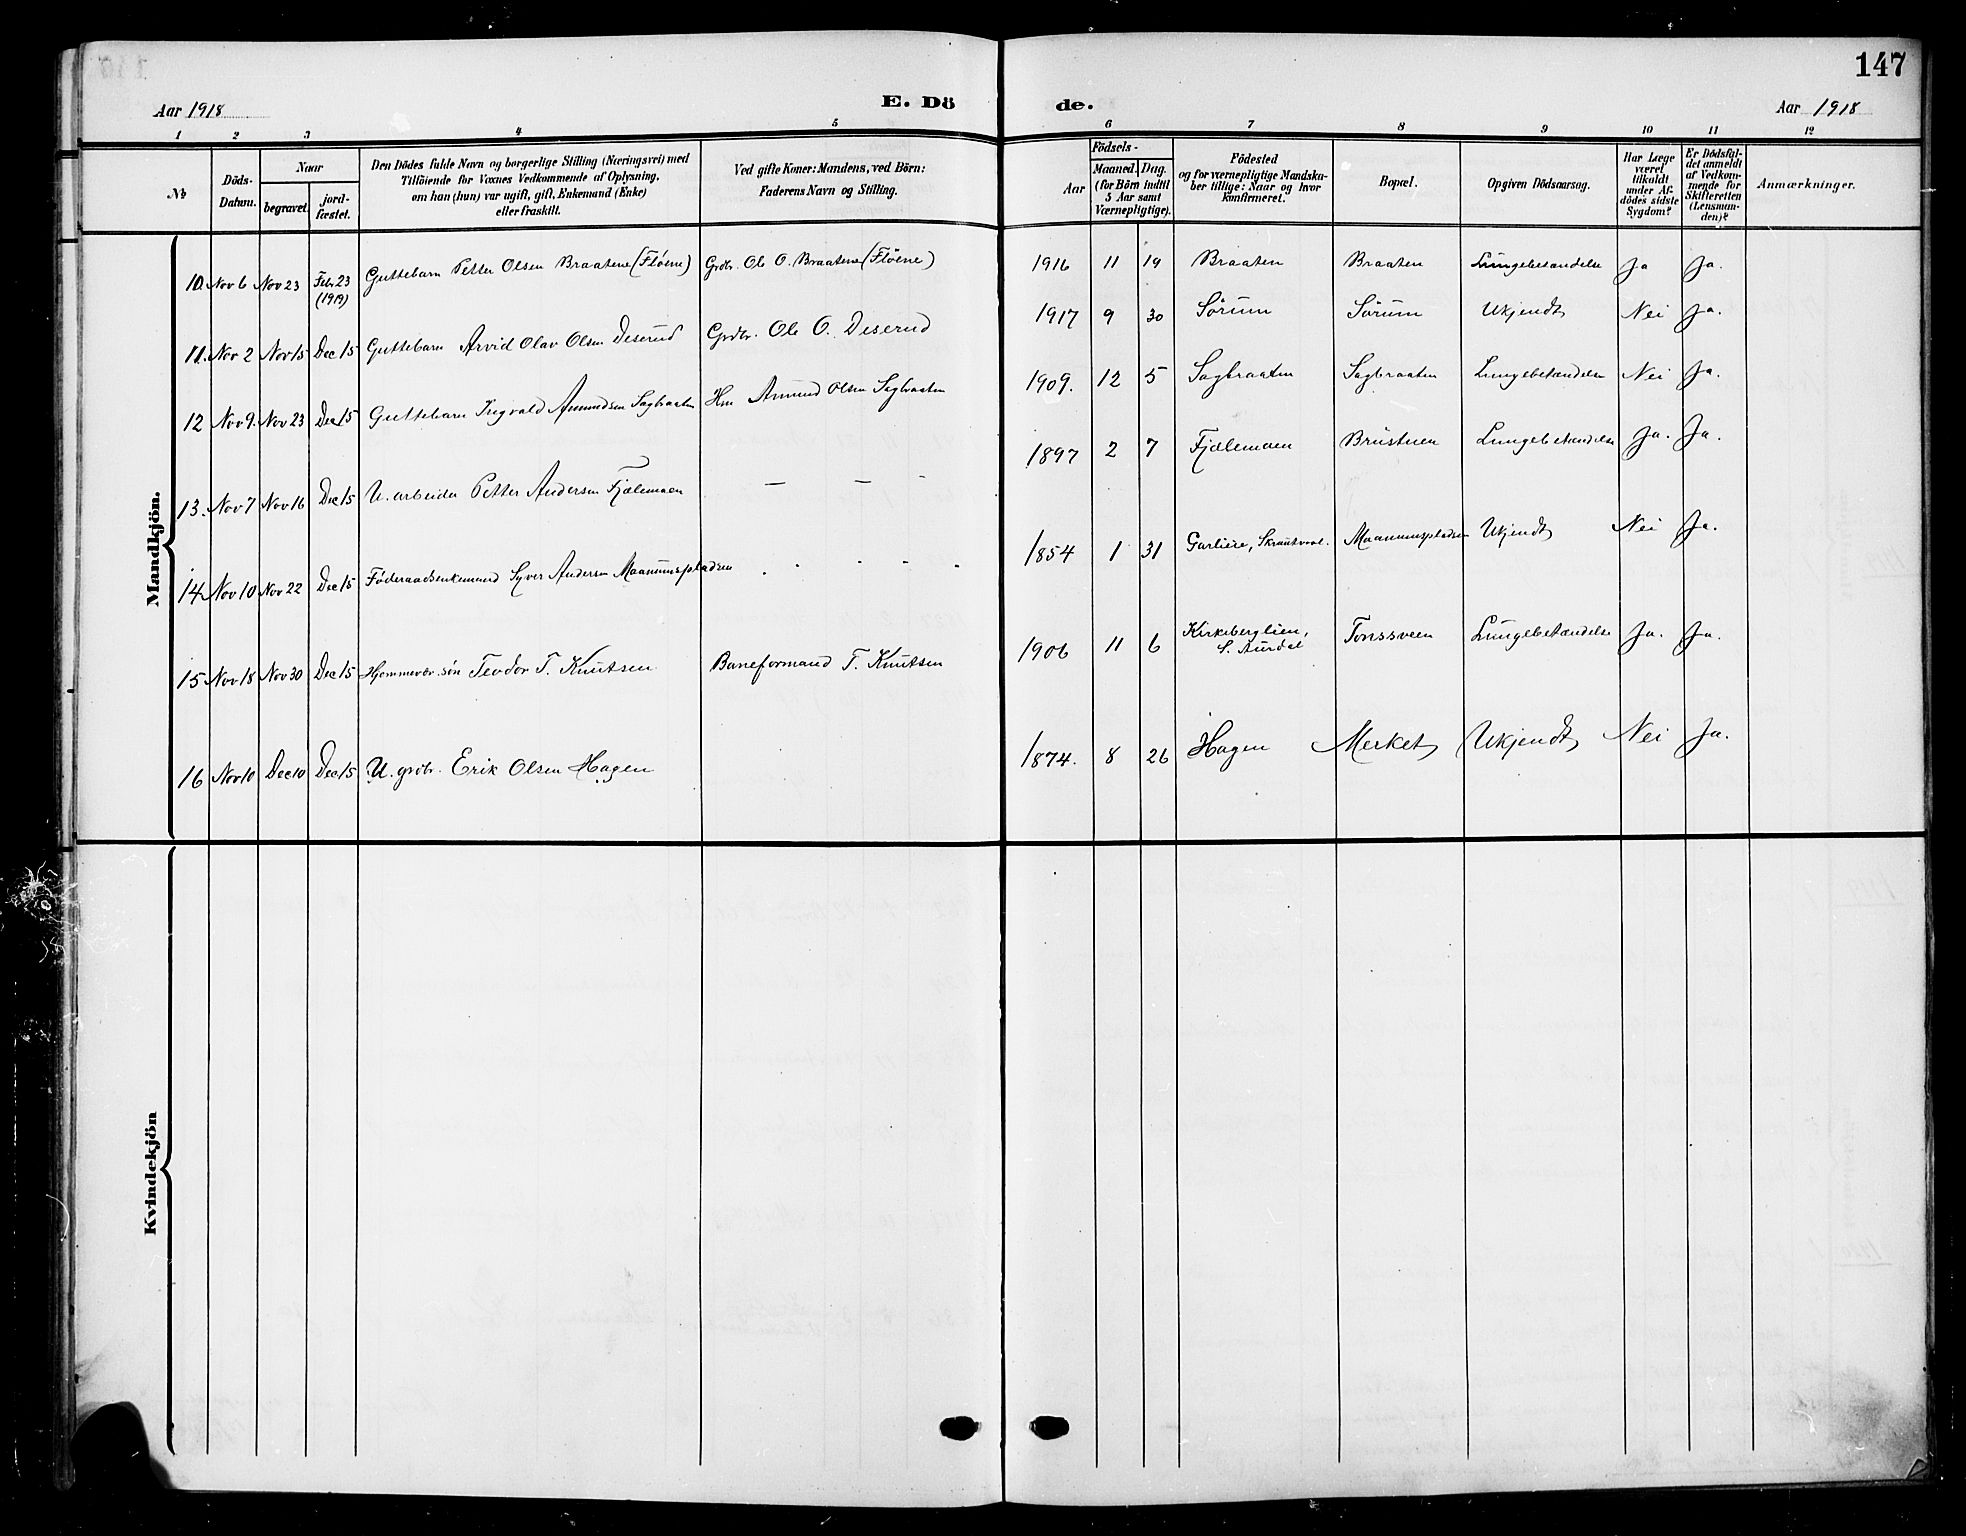 147
Aar 1918 E. Dö de. Aar 1918
1 2 3 4 5 6 7 8 9 10 11 12
№
Döds-Datum.
Naar
begravet.
jord-fæstet.
Den Dödes fulde Navn og borgerlige Stilling (Næringsvei) med
Tilföiende for Voxnes Vedkommende af Oplysning,
om han (hun) var ugift, gift, Enkemand (Enke)
eller fraskilt.
Ved gifte Koner: Mandens, ved Börn:
Faderens Navn og Stilling.
Födsels-
Aar
Maaned. Dag.
(for Börn indtil
5 Aar samt
Værnepligtige).
Födested
og for værnepligtige Mandska-
ber tillige: Naar og hvor
konfirmeret.
Bopæl.
Opgiven Dödsaarsag.
Har Læge
været
tilkaldt
under Af-
dödes sidste
Sygdom?
Er Dödsfal-
det anmeldt
af Vedkom-
mende for
Skifteretten
(Lensman-
den)?
Anmærkninger.
Mandkjön.
10. Nov 6 Nov 23 Febr. 23 (1919) Guttebarn Petter Olsen Braatene (Fløene) Grdbr. Ole O. Braatene (Fløene) 1916 11 19 Braaten Braaten Lungebetændelse Ja Ja.
11. Nov 2 Nov 15 Dec 15 Guttebarn Arvid Olav Olsen Deserud Grdbr. Ole O. Deserud 1917 9 30 Sørum Sørum Ukjendt Nei Ja.
12 Nov 9. Nov 23 Dec 15 Guttebarn Ingvald Amundsen Sagbraaten Hm Amund Olsen Sagbraaten 1909. 12 5 Sagbraaten Sagbraaten Lungebetændelse Nei Ja.
13. Nov 7 Nov 16 Dec 15 U. arbeider Petter Andersen Fjælemoen — — - 1897 2 7 Fjælemoen Brustuen Lungebetændelse Ja. Ja.
14. Nov 10 Nov 22 Dec 15 Føderaadsenkemand Syver Andersen Maanumspladsen 1854 1 31 Garliere, Skrautvaal. Maanumspladsen Ukjendt Nei Ja.
15 Nov 18 Nov 30 Dec 15 Hjemmevær. søn Teodor T. Knutsen Baneformand T. Knutsen 1906 11 6 Kirkeberglien, S. Aurdal Tonssveen Lungebetændelse Ja. Ja.
16 Nov 10 Dec 10 Dec 15 U. grdbr. Erik Olsen Hagen 1874. 8 26 Hagen Merket Ukjendt Nei Ja.
Kvindekjön